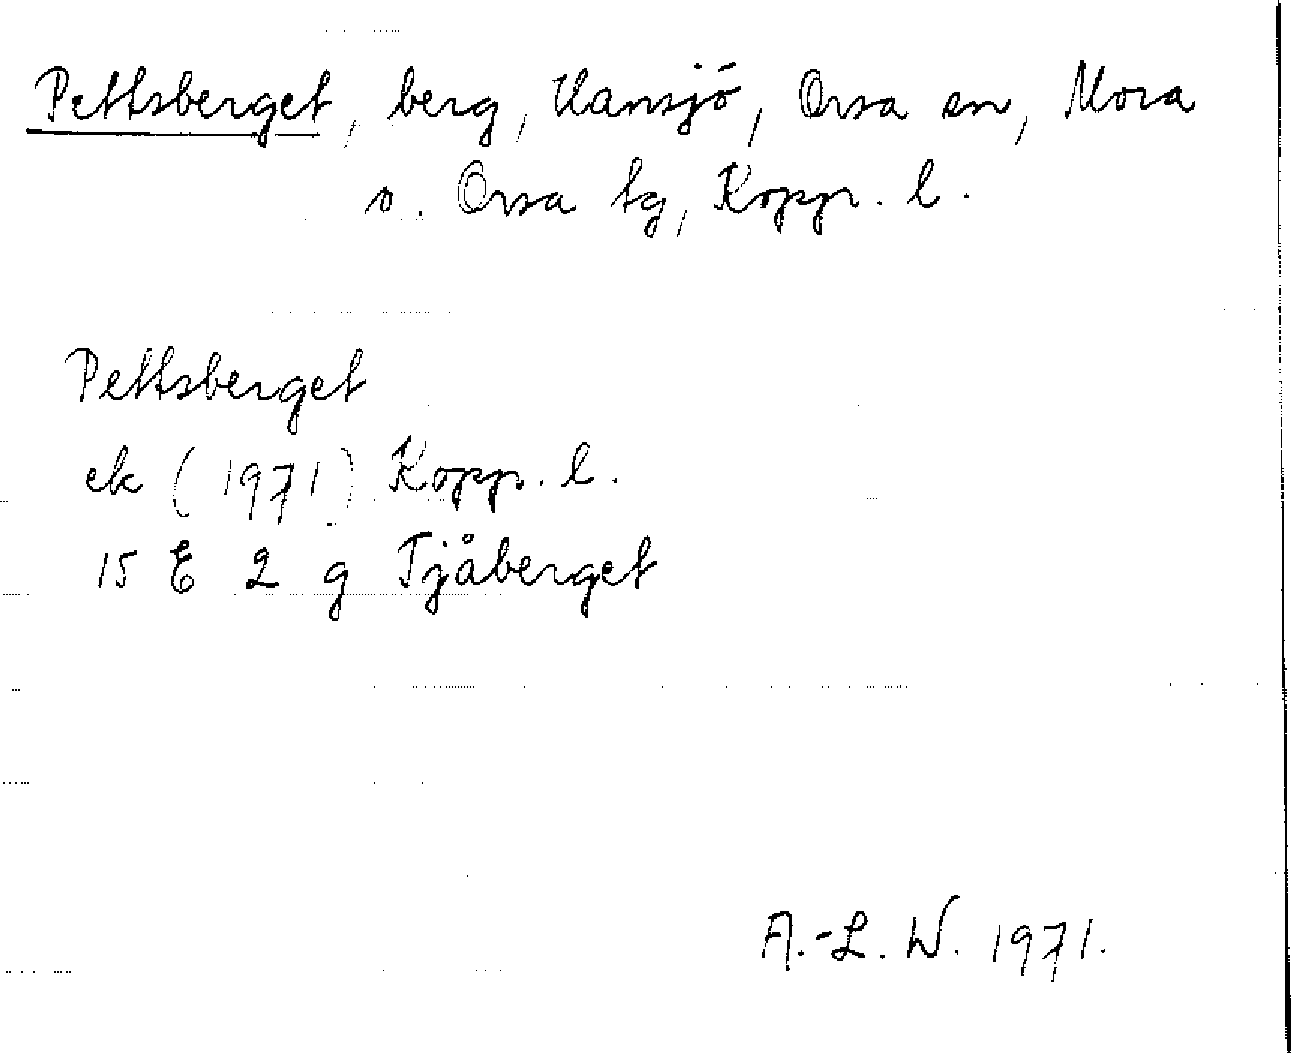 Pettsberget, berg, Hansjö, Orsa sn, Mora
o. Orsa tg, Kopp. l.
Pettsberget
ek (1971) Kopp. l.
15 E 2 g Tjåberget
A.-L. W. 1971.